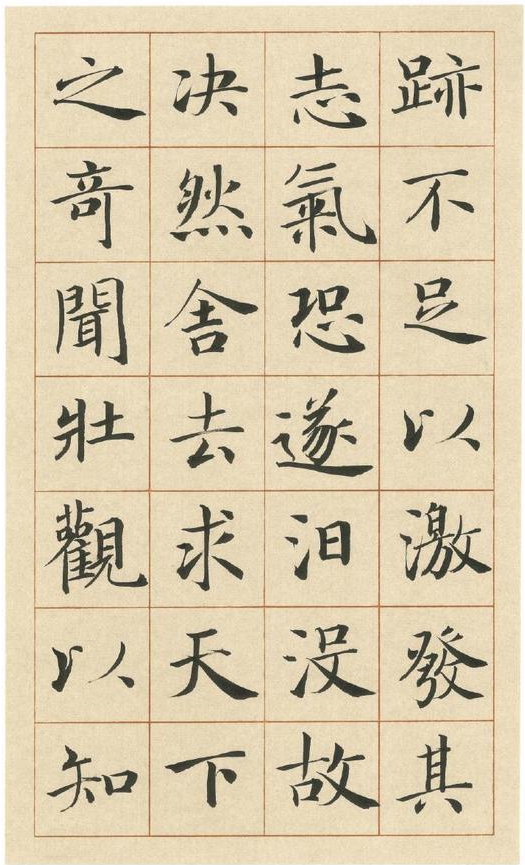 跡不足以激發其
志氣恐遂汩没故
决然舎去求天下
之奇聞壯觀以知